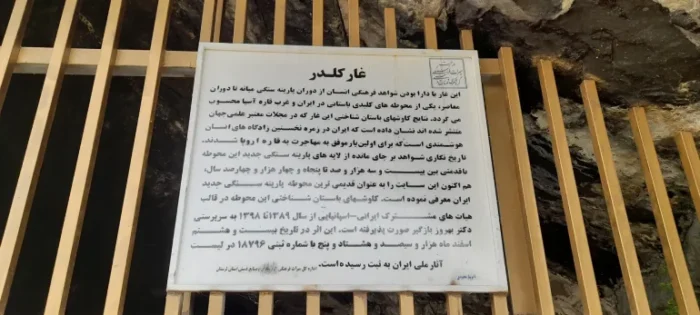 غار کلدر
این غار با دارا بودن شواهد فرهنگی انسان از دوران پارینه سنگی میانه تا دوران
معاصر، یکی از محوطه های کلیدی باستانی در ایران و غرب قاره آسیا محسوب
می گردد. نتایج کاوشهای باستان شناختی این غار که در مجلات معتبر علمی جهان
منتشر شده اند نشان داده است که ایران در زمره نخستین زادگاه های انسان
هوشمندی است که برای اولین بار موفق به مهاجرت به قاره اروپا شدند.
تاریخ نگاری شواهد بر جای مانده از لایه های پارینه سنگی جدید این محوطه
باقدمتی بین بیست و سه هزار و صد تا پنجاه و چهار هزار و چهارصد سال،
هم اکنون این سایت را به عنوان قدیمی ترین محوطه پارینه سنگی جدید
ایران معرفی نموده است. کاوشهای باستان شناختی این محوطه در قالب
هیات های مشترک ایرانی-اسپانیایی از سال ۱۳۸۹ تا ۱۳۹۸ به سرپرستی
دکتر بهروز بازگیر صورت پذیرفته است. این اثر در تاریخ بیست و هشتم
اسفند ماه هزار و سیصد و هشتاد و پنج با شماره ثبتی ۱۸۷۹۶ در لیست
آثار ملی ایران به ثبت رسیده است.
اداره کل میراث فرهنگی و صنایع دستی استان لرستان